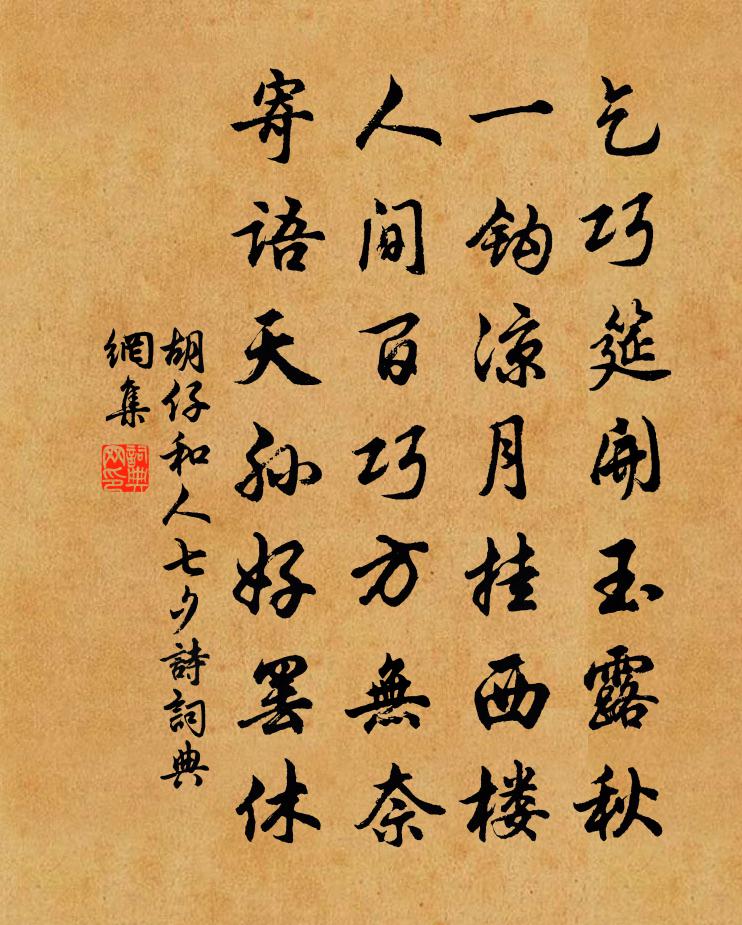 乞巧筵開玉露秋
一鈎凉月挂西楼
人间百巧方無奈
寄语天孙好罢休
胡仔和人七夕詩詞典
網集
詞典
网印